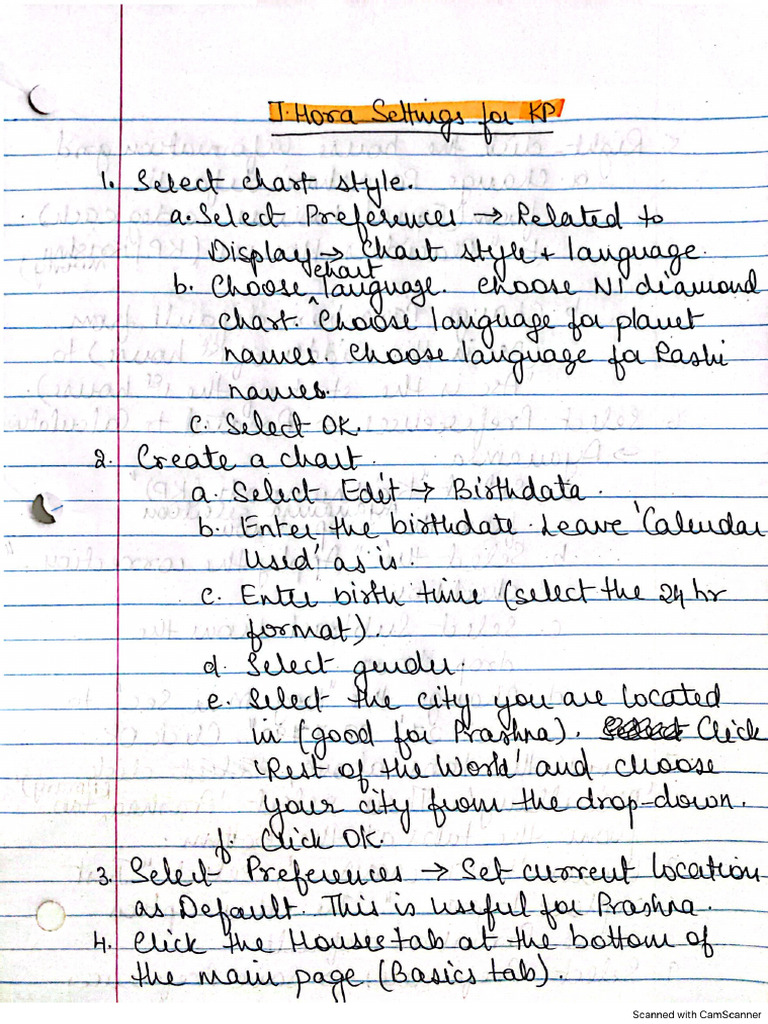 J.Hora Settings for KP
1. Select chart style.
a. Select Preferences → Related to
Display → Chart style + language.
b. Choose chart language. Choose NI diamond
chart. Choose language for planet
names. Choose language for Rashi
names.
c. Select OK.
2. Create a chart.
a. Select Edit → Birthdata.
b. Enter the birthdate. Leave 'Calendar
Used' as is.
c. Enter birth time (select the 24 hr
format).
d. Select gender.
e. Select the city you are located
in (good for Prashna). Click
'Rest of the World' and choose
your city from the drop-down.
f. Click OK.
3. Select Preferences → Set current location
as Default. This is useful for Prashna.
4. Click the Houses tab at the bottom of
the main page (Basics tab).
Scanned with CamScanner